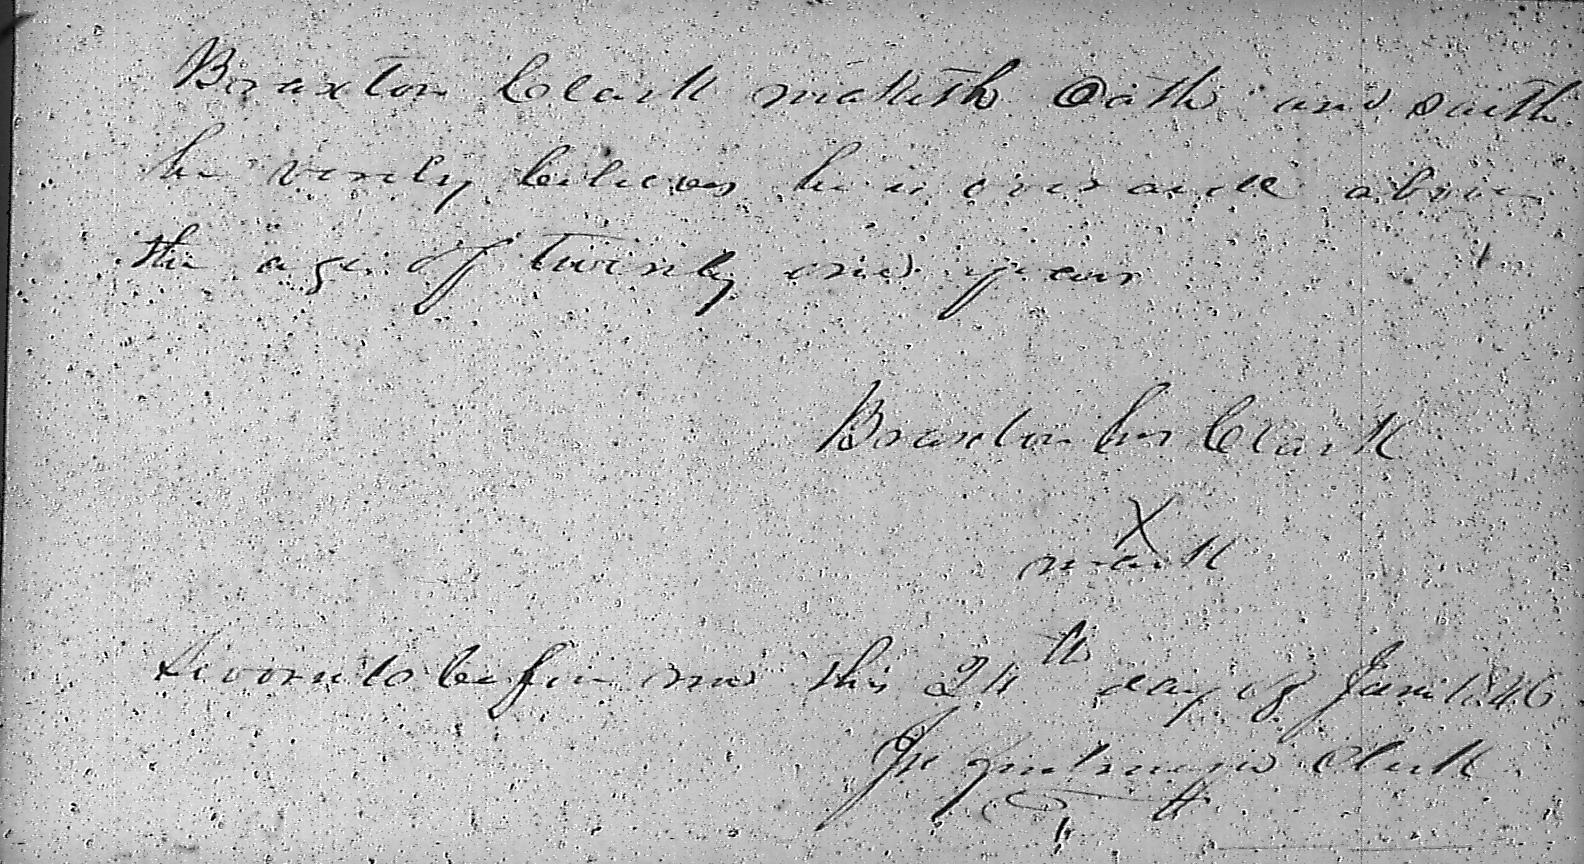 Braxton Clark maketh Oath and saith
he verely believes he is over and above
the age of twenty one years
Braxton his Clark
X
mark
Sworn to before me this 24th day of June 1846
Clerk